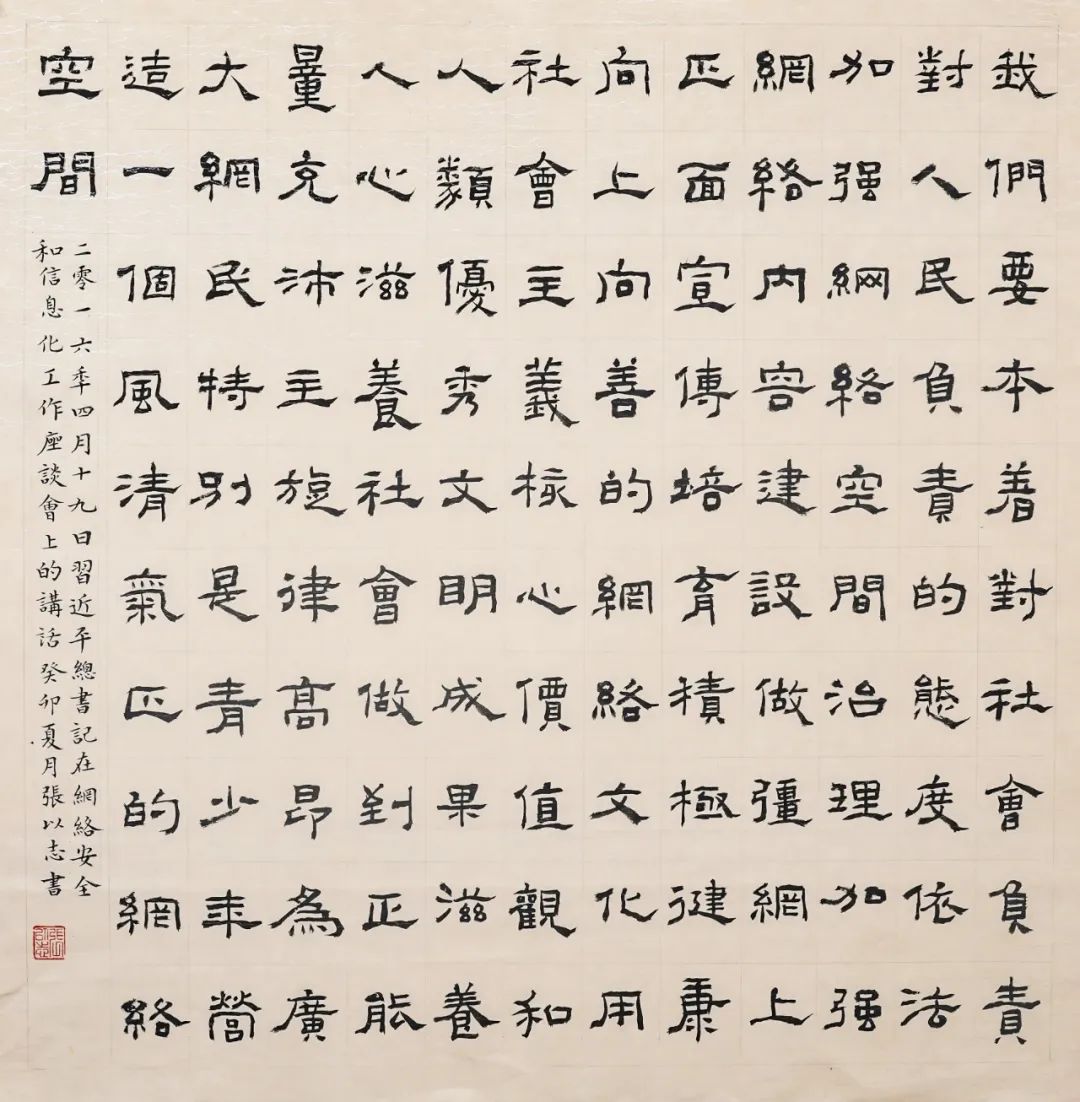 我們要本着對社會負責
對人民負責的態度依法
加强網絡空間治理加强
網絡內容建設做彊網上
正面宣傳培育積極健康
向上向善的網絡文化用
社會主義核心價值觀和
人類優秀文明成果滋養
人心滋養社會做到正能
量充沛主旋律高昂為廣
大網民特別是青少年營
造一個風清氣正的網絡
空間
二零一六年四月十九日習近平總書記在網絡安全
和信息化工作座談會上的講話癸卯夏月張以志書